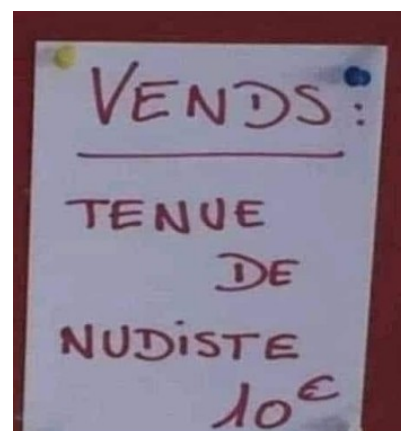 VENDS:
TENUE
DE
NUDiSTE
10€